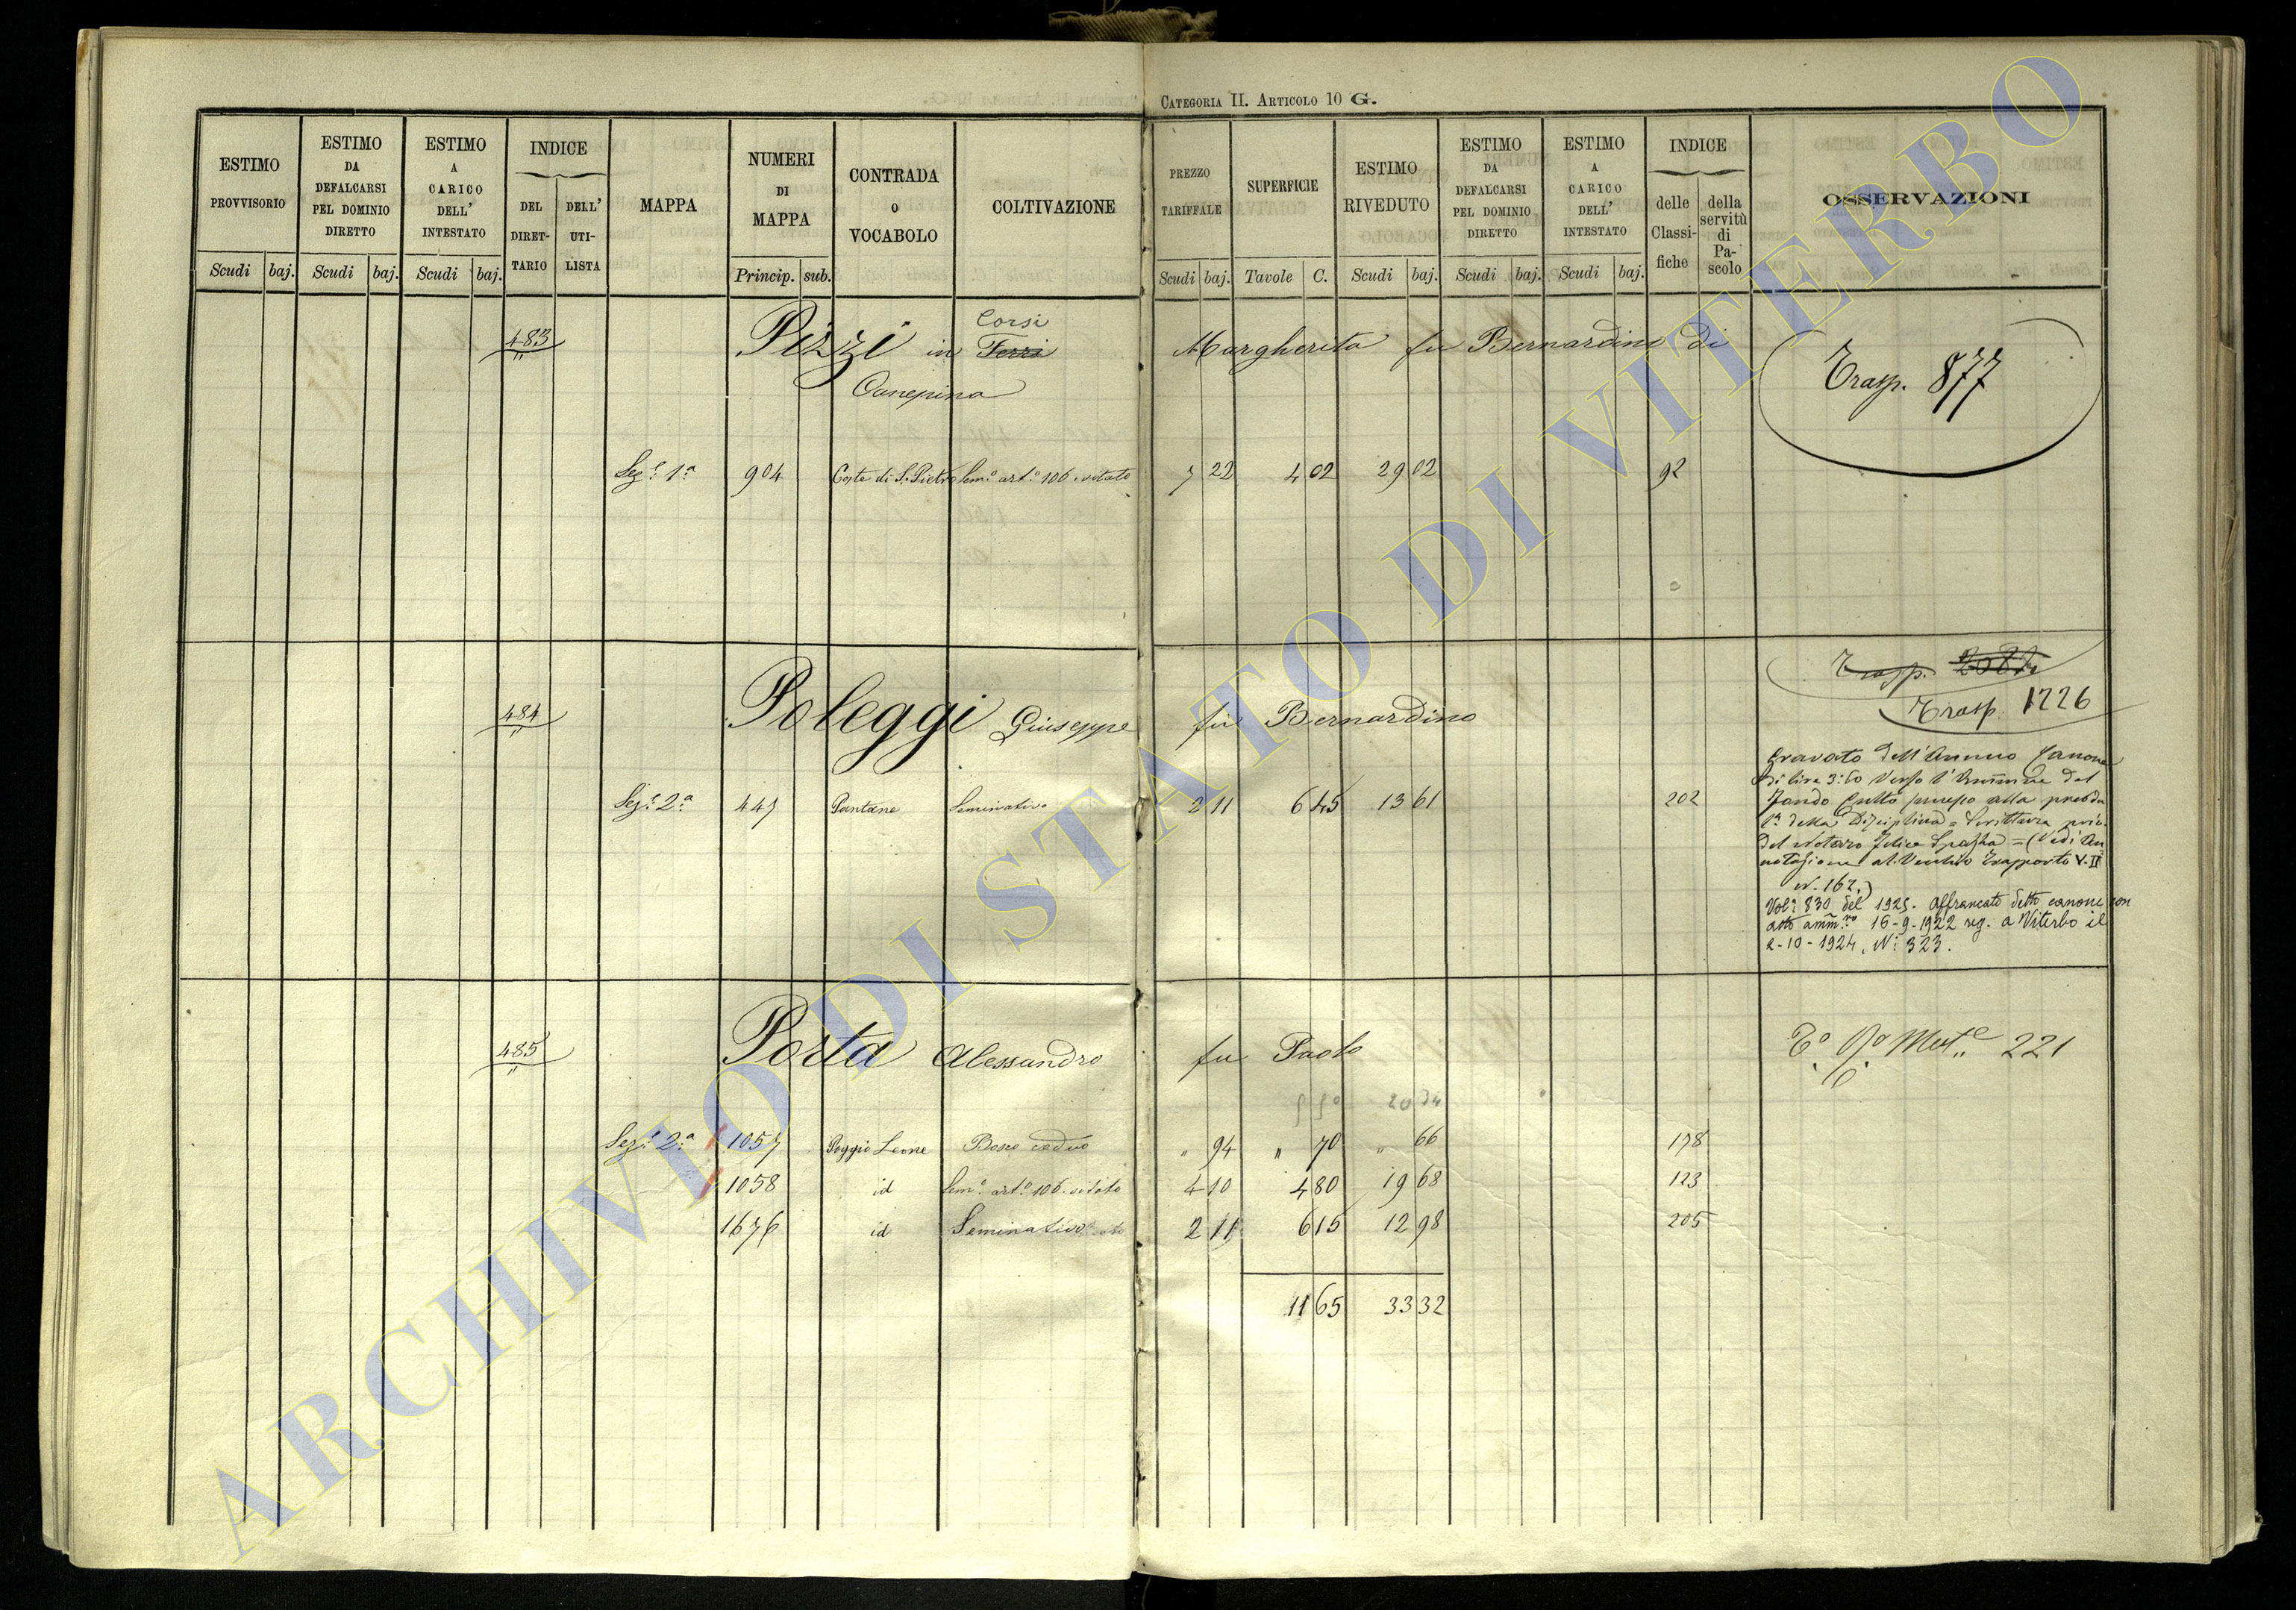 CATEGORIA II. ARTICOLO 10 G.
ESTIMO PROVVISORIO
ESTIMO DA DEFALCARSI PEL DOMINIO DIRETTO
ESTIMO A CARICO DELL' INTESTATO
INDICE
DEL DIRET-TARIO
DELL' UTI-LISTA
MAPPA
NUMERI DI MAPPA
CONTRADA O VOCABOLO
COLTIVAZIONE
PREZZO TARIFFALE
SUPERFICIE
ESTIMO RIVEDUTO
ESTIMO DA DEFALCARSI PEL DOMINIO DIRETTO
ESTIMO A CARICO DELL' INTESTATO
INDICE
delle Classi-fiche
della servitù di Pa-scolo
OSSERVAZIONI
Scudi baj. Scudi baj. Scudi baj. Princip. sub. Scudi baj. Tavole C. Scudi baj. Scudi baj. Scudi baj.
Corsi
483 Pizzi in Ferri Margherita fu Bernardino di
Canepina
Trasp. 877
Sez.e 1.a 904 Coste di S. Pietro Sem.o art.o 106. vitato 7 22 4 02 29 02 92
Trasp. 2087
Trasp. 1226
484 Poleggi Giuseppe fu Bernardino
Sez.e 2.a 447 Pantane Seminativo 2 11 6 45 13 61 202
Gravato dell'Annuo Canone
di lire 3:60 Verso l'Amm.ne del
Fondo Culto
della Disciplina = Scrittura
del Notaro Felice = (Vedi An
notazione al Trasporto V. II
N. 162.)
Vol. 830 del 1925. Affrancato detto canone con
atto amm.vo 16-9-1922 reg. a Viterbo il
2-10-1924. N. 323.
485 Porta Alessandro fu Paolo
221
20 34
Sez.e 2.a 1057 Poggio Leone Bosco ceduo " 94 " 70 " 66 178
1058 id Sem.o art.o 106. vitato 4 10 4 80 19 68 123
1676 id Seminativo 2 11 6 15 12 98 205
11 65 33 32
ARCHIVIO DI STATO DI VITERBO